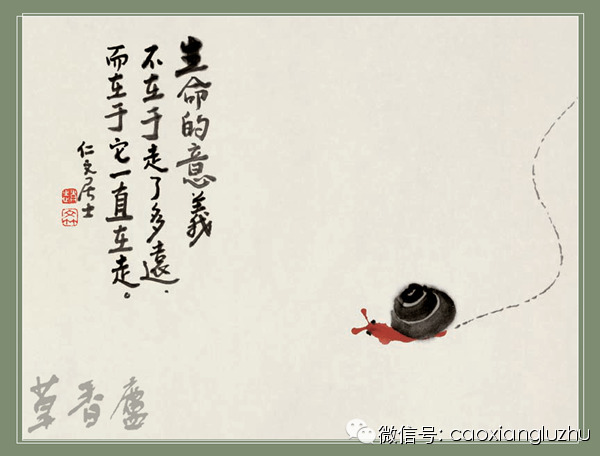 生命的意義
不在于走了多遠.
而在于它一直在走。
仁文居士
草香廬
微信号: caoxiangluzhu